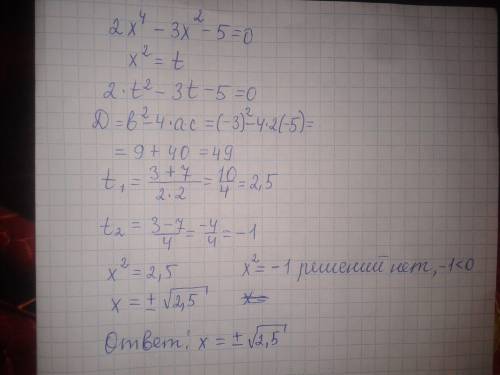 2x⁴ - 3x² - 5 = 0
x² = t
2·t² - 3t - 5 = 0
D = b² - 4·ac = (-3)² - 4·2(-5) =
= 9 + 40 = 49
t₁ = (3+7)/(2·2) = 10/4 = 2,5
t₂ = (3-7)/4 = -4/4 = -1
x² = 2,5    x² = -1 решений нет, -1<0
x = ± √2,5    x
Ответ: x = ± √2,5